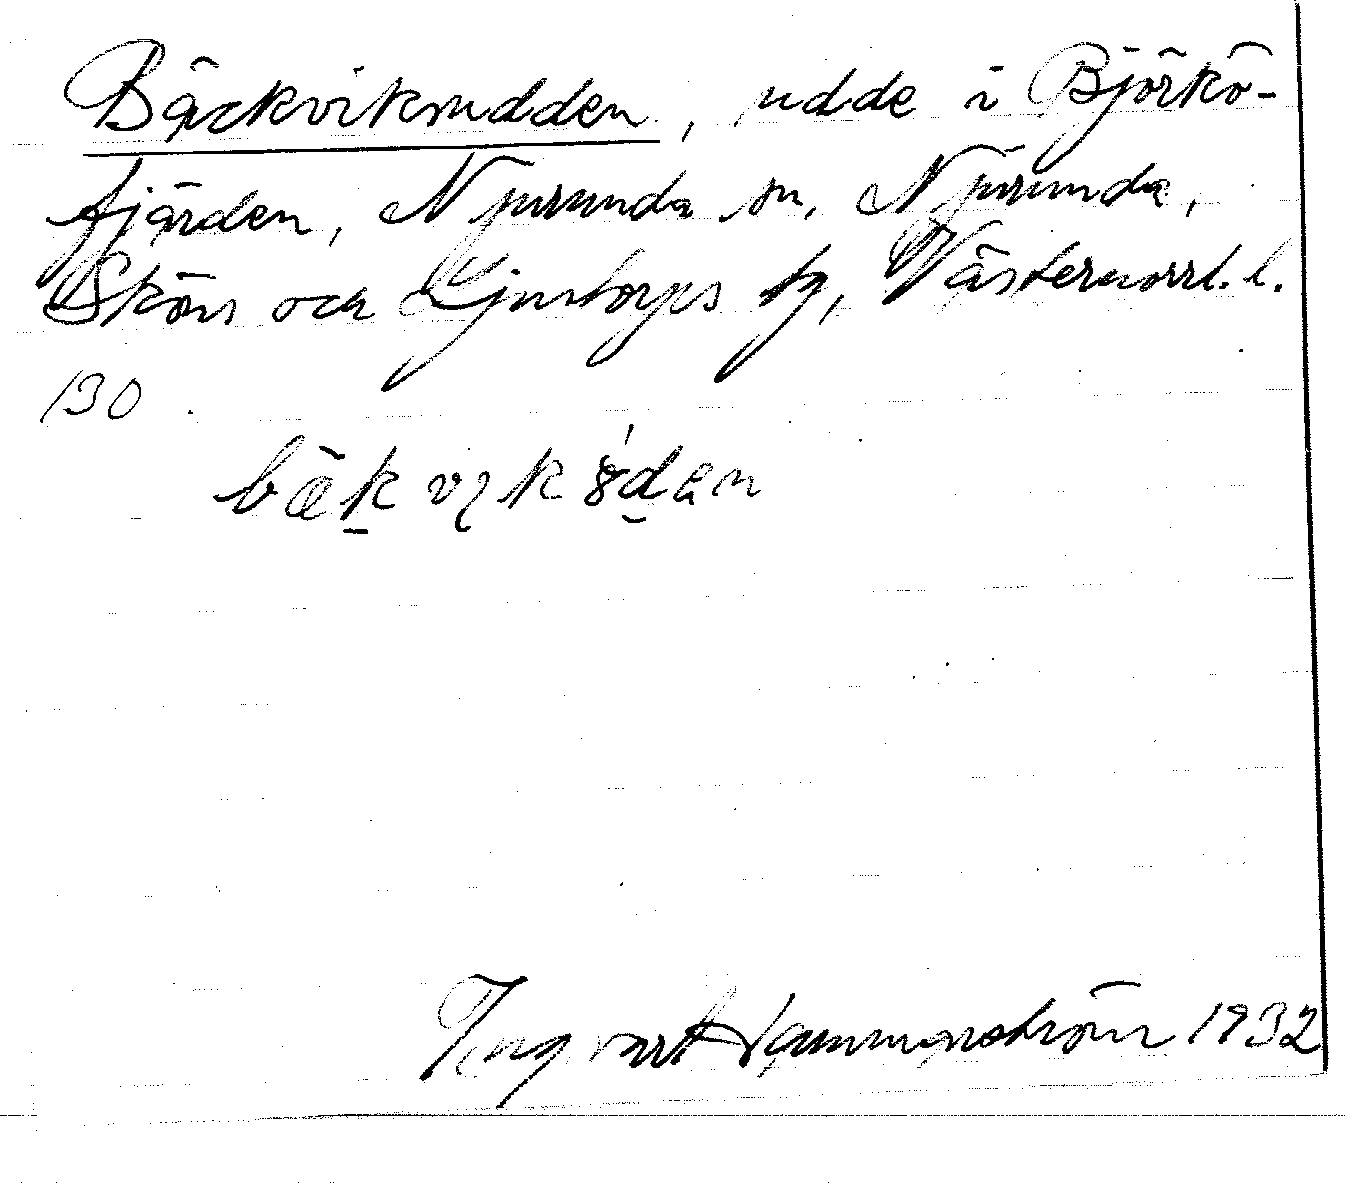 Bäckviksudden, udde i Björkö-
fjärden, Njurunda sn, Njurunda,
Sköns och Ljustorps tg, Västernorrl. l.
130.
bäkvikud̠en
Ingvart Hammarström 1932